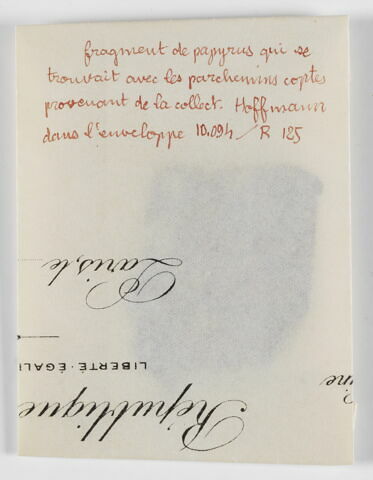 fragment de papyrus qui se
trouvait avec les parchemins coptes
provenant de la collect. Hoffmann
dans l'enveloppe 10.094 / R 125
Paris, le
LIBERTÉ-ÉGALI
ine
République